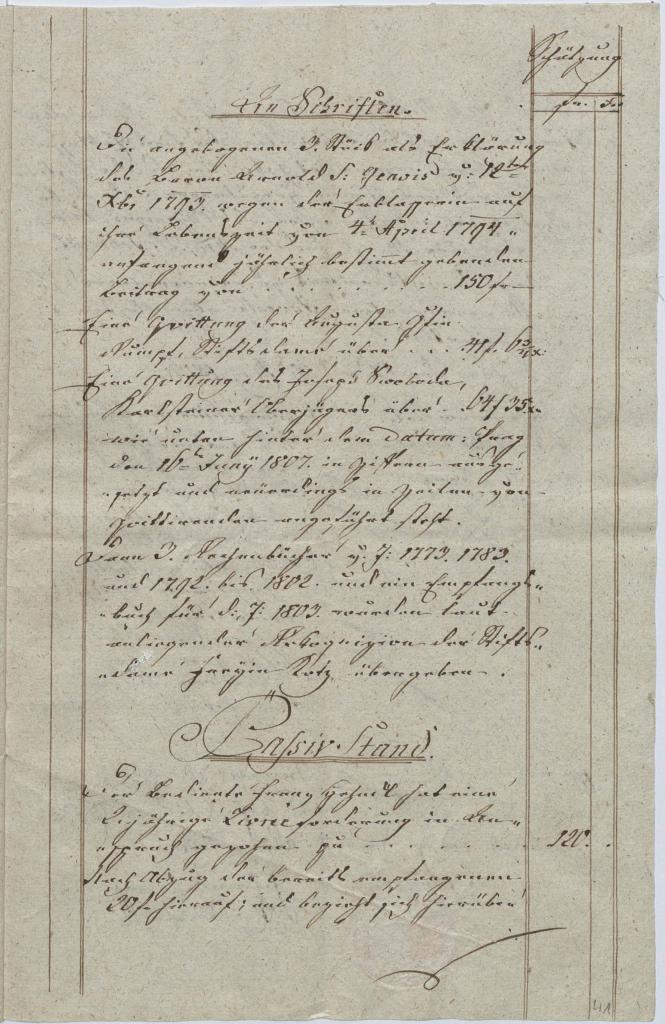 Schätzung
fr. x.
An Schriften.
Die angebogenen 3. Stück als Erklärung
des Baron Arnold v: 12ten
Xbr 1793. wegen der Erblasserin auf
ihre Lebenszeit von 4t April 1794.
anfangend jährlich bestimmt gebenden
Beitrag von . . . . . 150 fr
Eine Quittung der Augusta Gfin
Kumpf, Stiftsdame über . . .
Eine Quittung des Joseph Swoboda,
Karlsteiner Oberjägers über . 64 f 35 x
wie unten hinter dem Datum: Prag
den 16ten Juny 1807. in Ziffern ausge-
setzt und neuerdings in Zeilen von
Quittirenden angeführt steht.
Dann 3. Rechenbücher v. J: 1773. 1783.
und 1792. bis 1802. und ein Empfangs-
buch für d: J: 1803. wurden laut
anliegender Rekognizion der Stifts-
dame Freyin Kotz übergeben.
Passiv-Stand.
Der Bediente Franz hat eine
jährige Livréeforderung in An-
spruch gezohen zu . . . . . 120. .
Nach Abzug der bereits empfangenen
20 f hierauf; und bezieht sich hierüber
41